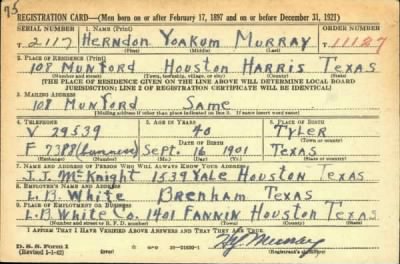 95
REGISTRATION CARD—(Men born on or after February 17, 1897 and on or before December 31, 1921)
SERIAL NUMBER 1. NAME (Print) ORDER NUMBER
T 2117 HERNDON YOAKUM MURRAY 11127
(First) (Middle) (Last)
2. PLACE OF RESIDENCE (Print)
108 MUNFORD HOUSTON HARRIS TEXAS
(Number and street) (Town, township, village, or city) (County) (State)
[THE PLACE OF RESIDENCE GIVEN ON THE LINE ABOVE WILL DETERMINE LOCAL BOARD
JURISDICTION; LINE 2 OF REGISTRATION CERTIFICATE WILL BE IDENTICAL]
3. MAILING ADDRESS
108 MUNFORD SAME
[Mailing address if other than place indicated on line 2. If same insert word same]
4. TELEPHONE 5. AGE IN YEARS 6. PLACE OF BIRTH
V 29539 40 TYLER
DATE OF BIRTH (Town or county)
F 7388 (business) SEPT. 16 1901 TEXAS
(Exchange) (Number) (Mo.) (Day) (Yr.) (State or country)
7. NAME AND ADDRESS OF PERSON WHO WILL ALWAYS KNOW YOUR ADDRESS
J.J. McKNIGHT 1539 YALE HOUSTON TEXAS
8. EMPLOYER'S NAME AND ADDRESS
L.B. WHITE BRENHAM TEXAS
9. PLACE OF EMPLOYMENT OR BUSINESS
L.B. WHITE CO. 1401 FANNIN HOUSTON TEXAS
(Number and street or R. F. D. number) (Town) (County) (State)
I AFFIRM THAT I HAVE VERIFIED ABOVE ANSWERS AND THAT THEY ARE TRUE.
D. S. S. Form 1
(Revised 1-1-42) (over) 16—21630-1 H.Y. Murray
(Registrant's signature)